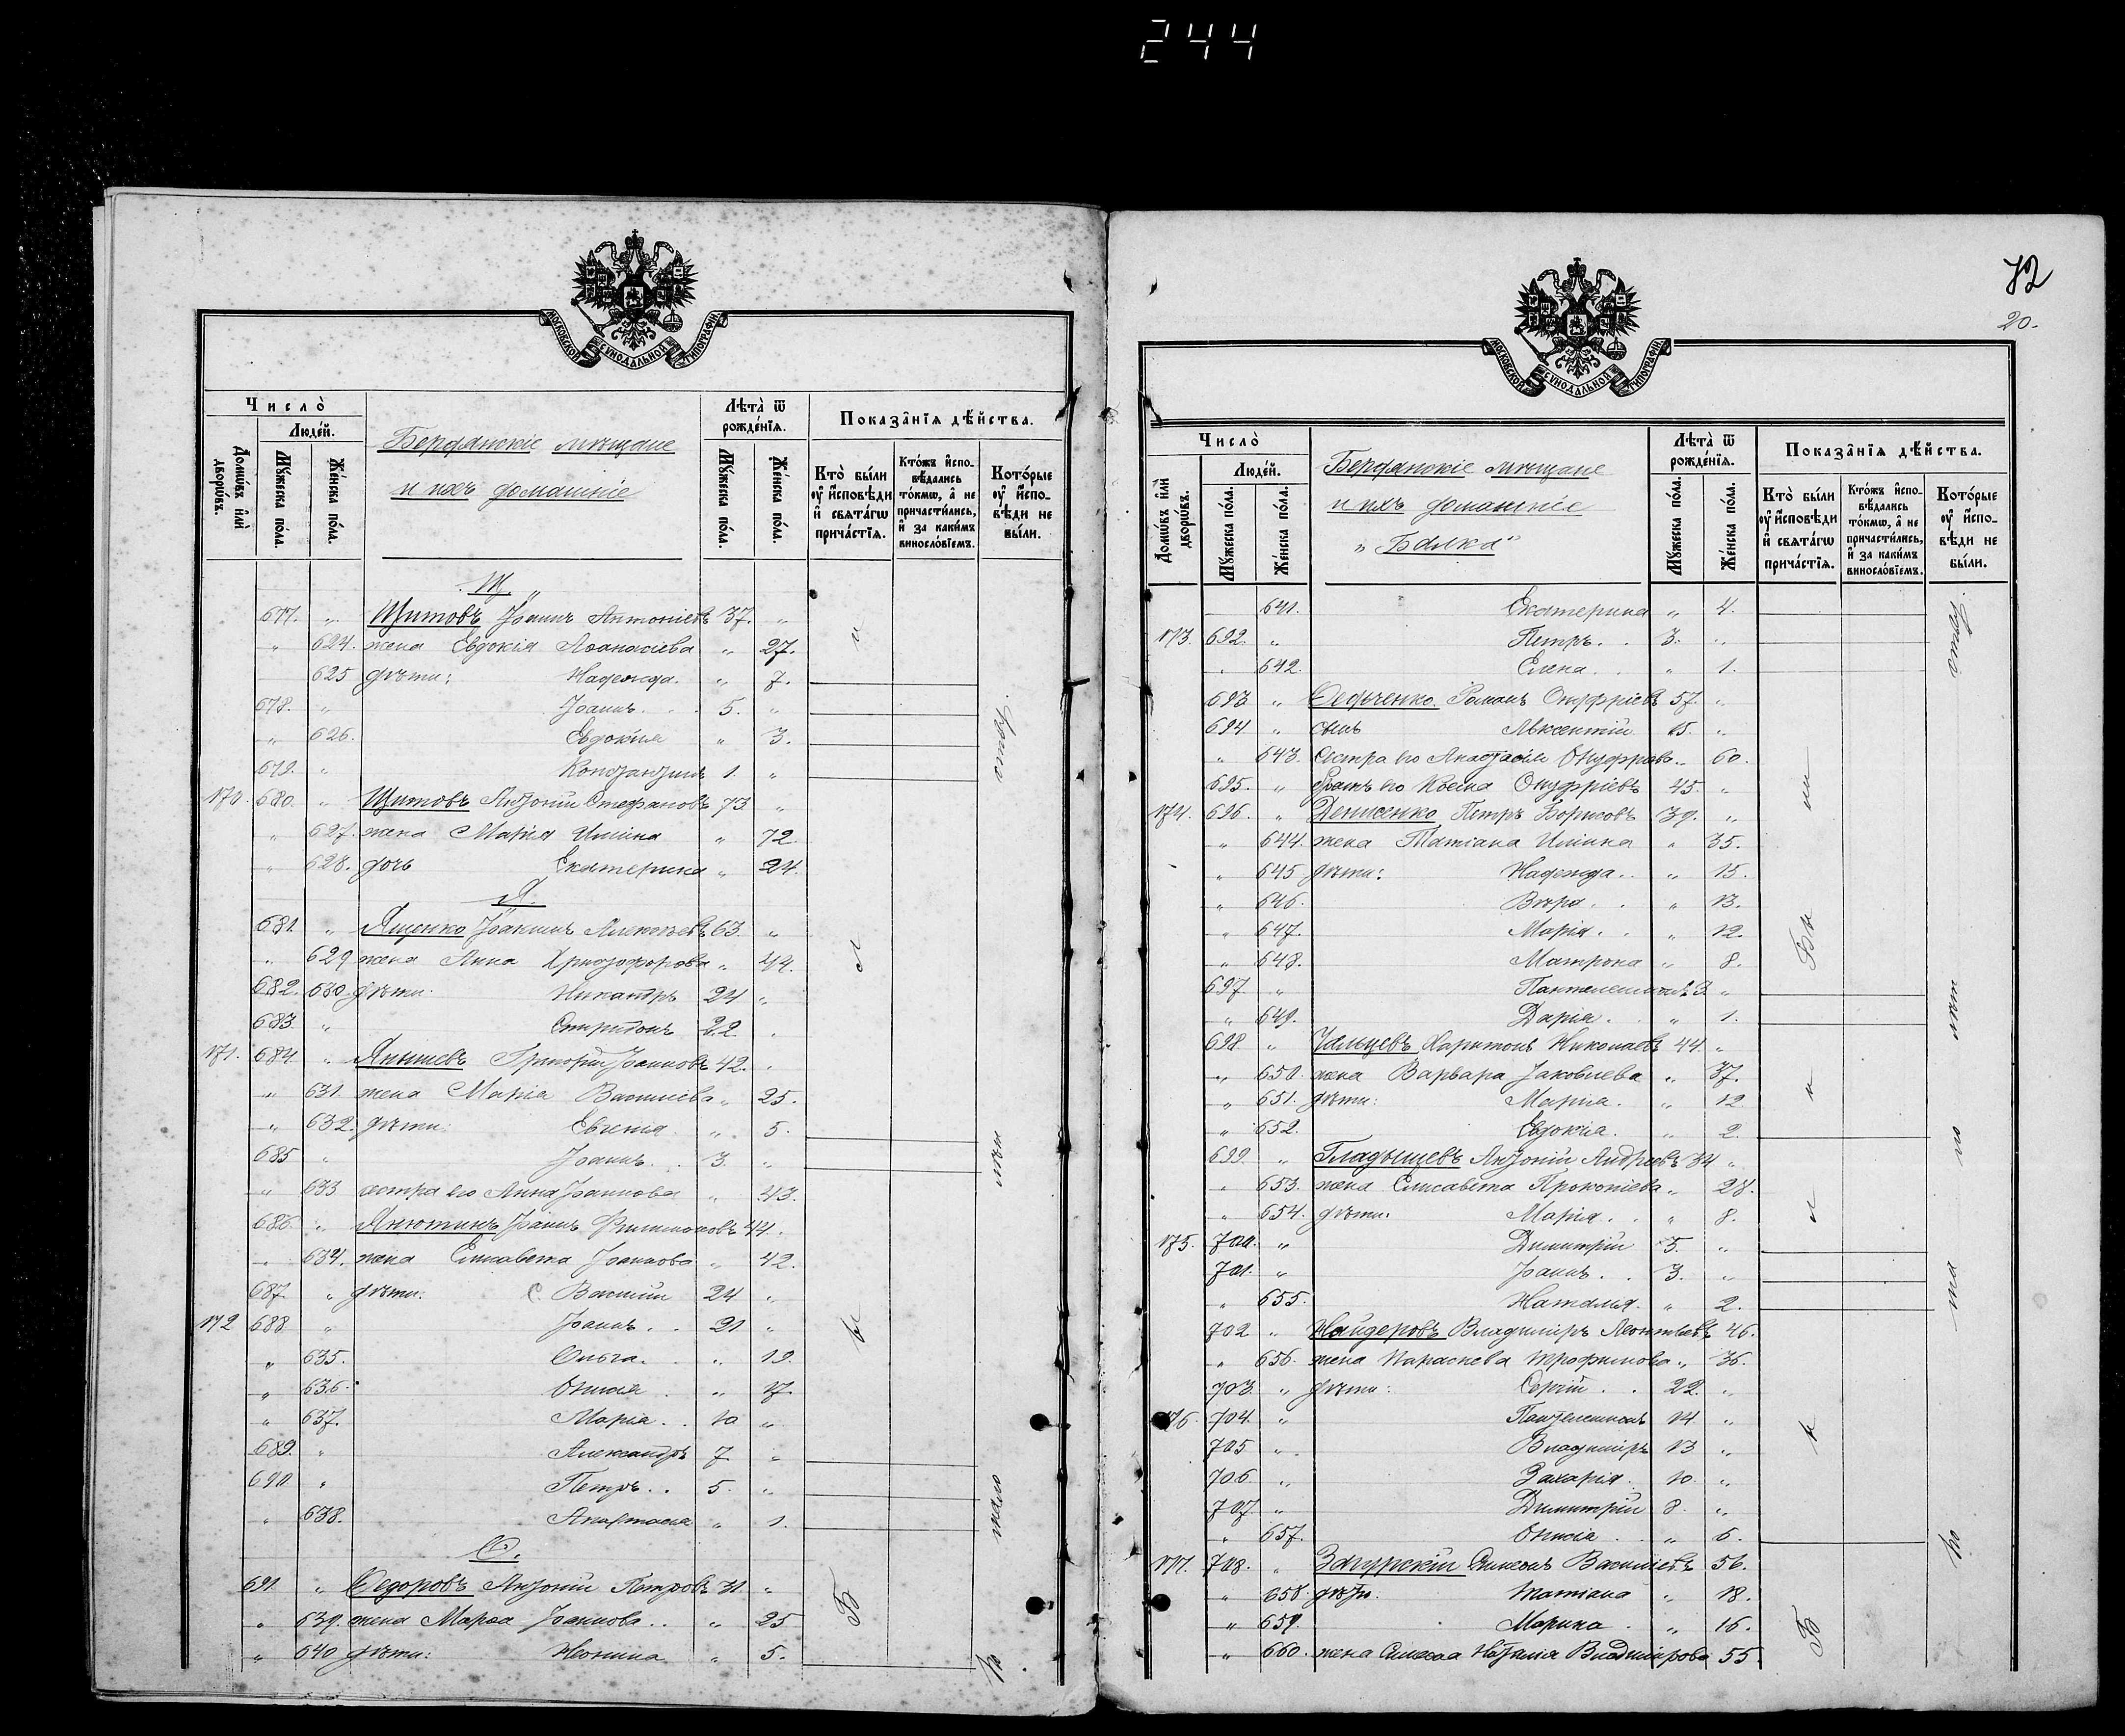 244
МОСКОВСКОЙ СѴНОДАЛЬНОЙ ТИПОГРАФІИ.
Число̀
Людéй.
Домѡ́въ и҆лѝ дворѡ́въ.
Мꙋ́жеска по́ла.
Же́нска по́ла.
Бердянскіе мѣщане
и ихъ домашніе
Лѣта̀ ѿ рожде́нїя.
Мꙋ́жеска по́ла.
Же́нска по́ла.
Показа̂нїя дѣ́йства.
Кто̀ бы́ли ᲂу҆ и҆сповѣ́ди и҆ свѧта́гѡ прича́стїѧ.
Кто́жъ и҆спо-вѣ́дались то́кмѡ, а҆ не причасти́лись, и҆ за каки́мъ виносло́вїемъ.
Кото́рые ᲂу҆ и҆спо-вѣ́ди не бы́ли.
Щ.
677. „ Щитовъ Іоаннъ Антоніевъ 37. „
„ 624. жена Евдокія Аѳанасіева „ 27.
625 дѣти: Надежда. „ 7.
678. „ Іоаннъ. 5. „
„ 626. Евдокія „ 3.
679. „ Константинъ 1. „
170. 680. „ Щитовъ Антоній Стефановъ 73 „
„ 627. жена Марія Ильина „ 72.
„ 628. дочь Екатерина „ 24.
Я.
681. „ Ященко Іоакимъ Алексѣевъ 63. „
„ 629 жена Анна Христофорова „ 49.
682. 630. дѣти. Никандръ 24 „
683. „ Спиридонъ 22. „
171. 684. „ Янышевъ Григорій Іоанновъ 42. „
„ 631. жена Марія Василіева „ 25.
„ 632. дѣти: Евгенія „ 5.
685 „ Іоаннъ. 3. „
„ 633 сестра его Анна Іоаннова „ 43.
686. „ Янютинъ Іоаннъ Филимоновъ 44.
„ 634. жена Елисавета Іоаннова „ 42.
687. „ дѣти. Василій 24 „
172 688. „ Іоаннъ. 21 „
„ 635. Ольга. „ 19.
„ 636. Онисія „ 17.
„ 637. Марія. 10 „
689. „ Александръ 7. „
690 „ Петръ. 5. „
„ 638. Анастасія „ 1.
Ѳ.
691. „ Ѳедоровъ Антоній Петровъ 31. „
„ 639. жена Марѳа Іоаннова. „ 25
„ 640 дѣти: Неонила „ 5.
Б ы л и
По мало лѣт ству.
72
20.
МОСКОВСКОЙ СѴНОДАЛЬНОЙ ТИПОГРАФІИ.
Число̀
Людéй.
Домѡ́въ и҆лѝ дворѡ́въ.
Мꙋ́жеска по́ла.
Же́нска по́ла.
Бердянскіе мѣщане
и ихъ домашніе
„Балка“
Лѣта̀ ѿ рожде́нїя.
Мꙋ́жеска по́ла.
Же́нска по́ла.
Показа̂нїя дѣ́йства.
Кто̀ бы́ли ᲂу҆ и҆сповѣ́ди и҆ свѧта́гѡ прича́стїѧ.
Кто́жъ и҆спо-вѣ́дались то́кмѡ, а҆ не причасти́лись, и҆ за каки́мъ виносло́вїемъ.
Кото́рые ᲂу҆ и҆спо-вѣ́ди не бы́ли.
641. Екатерина „ 4.
173. 692. „ Петръ. 3. „
„ 642. Елена „ 1.
693 „ Ѳедченко Романъ Онуфріевъ 57. „
694 „ сынъ Авксентій 15. „
„ 643. Сестра его Анастасія Онуфріева. 60.
695. „ братъ его Косьма Онуфріевъ 45. „
174. 696. „ Денисенко Петръ Борисовъ 39. „
„ 644. жена Татіана Ильина „ 35.
„ 645 дѣти: Надежда. „ 15.
„ 646. Вѣра. „ 13.
„ 647. Марія. „ 12.
„ 648. Матрона „ 8.
697 „ Пантелеимонъ 3. „
„ 649. Дарія. „ 1.
698 „ Удальцевъ Харитонъ Николаевъ 44. „
„ 650. жена Варвара Іаковлева „ 37.
„ 651. дѣти: Марія. „ 12
„ 652. Евдокія. „ 2.
699. „ Гладышевъ Антоній Андреевъ 34 „
„ 653. жена Елисавета Прокопіева „ 28.
„ 654. дѣти: Марія. „ 8.
175. 700. „ Димитрій 5. „
701. „ Іоаннъ. 3. „
„ 655. Наталія. „ 2.
702 „ Найдеровъ Владиміръ Леонтіевъ 46.
„ 656. жена Параскева Трофимова „ 36.
703. „ дѣти: Сергій. 22. „
176. 704. „ Пантелеимонъ 14 „
705 „ Владиміръ 13 „
706. „ Захарія. 10. „
707. „ Димитрій 8. „
„ 657. Онисія „ 6.
177. 708. „ Загурскій Симеонъ Василіевъ 56.
„ 658. дѣти. Татіана „ 18.
„ 659. Марина „ 16.
„ 660. жена Симеона Наталія Владимірова 55
Б ы л и
По ма ло лѣт ству.